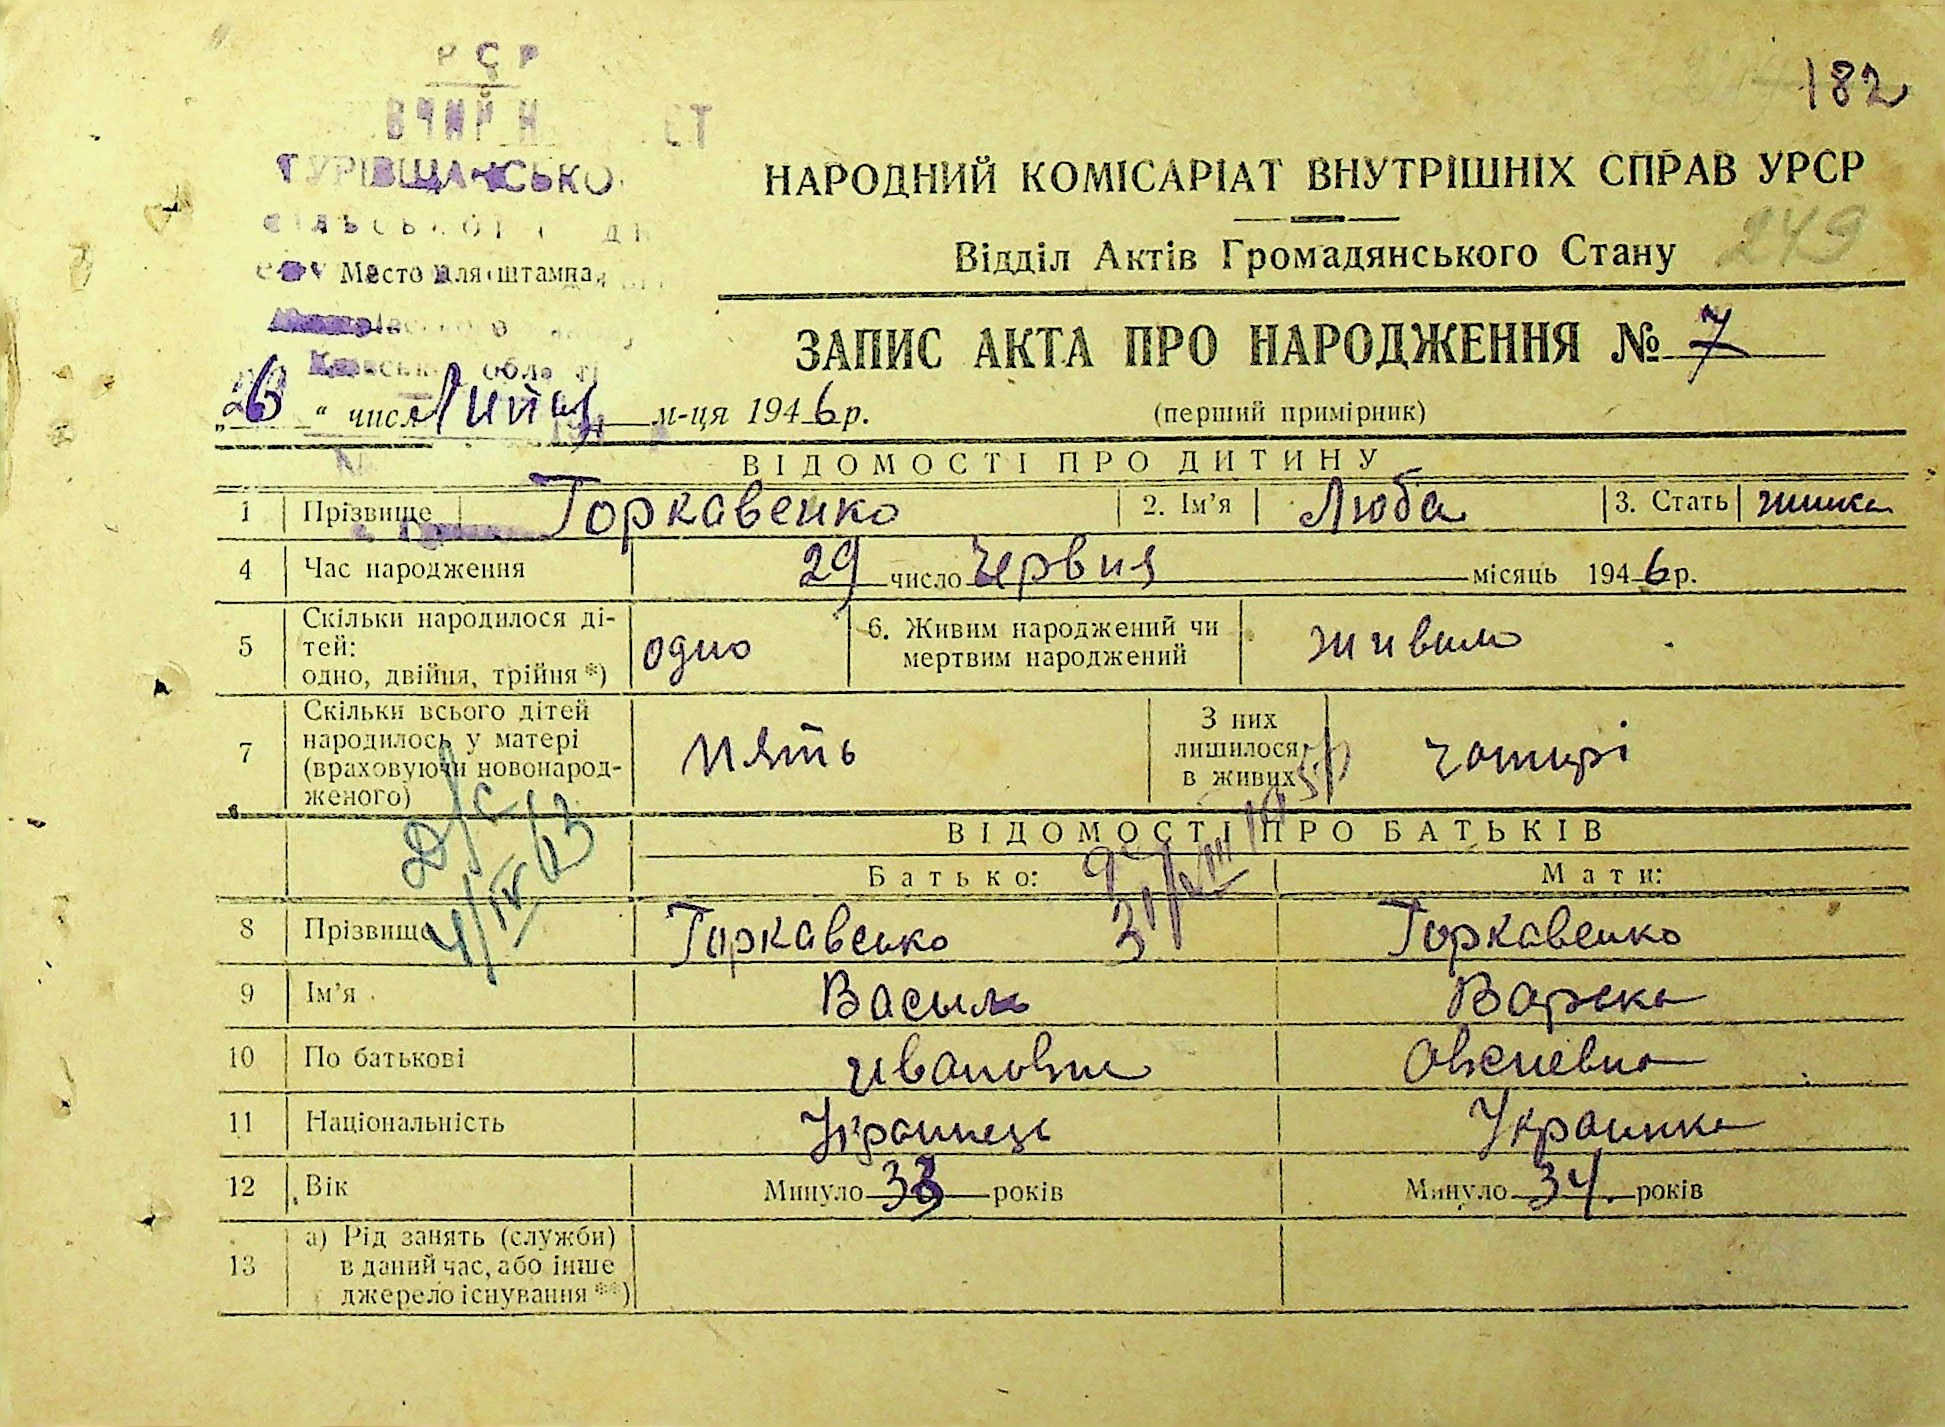 182
РСР
ТУРІВЩАНСЬКО
Место для штампа
НАРОДНИЙ КОМІСАРІАТ ВНУТРІШНІХ СПРАВ УРСР
Відділ Актів Громадянського Стану 249
ЗАПИС АКТА ПРО НАРОДЖЕННЯ № 7
„6“ числа Липня м-ця 1946 р. (перший примірник)
ВІДОМОСТІ ПРО ДИТИНУ
1 Прізвище Торкавенко 2. Ім’я Люба 3. Стать жинка
4 Час народження 29 число Червня місяць 1946 р.
5 Скільки народилося ді-
тей:
одно, двійня, трійня *) одно 6. Живим народжений чи
мертвим народжений живым
7 Скільки всього дітей
народилось у матері
(враховуючи новонарод-
женого) пять З них
лишилося
в живих чотирі
ВІДОМОСТІ ПРО БАТЬКІВ
Батько: Мати:
8 Прізвище Торкавенко Торкавенко
9 Ім’я Васыль Варька
10 По батькові Иванович
11 Національність Украинець Украинка
12 Вік Минуло 33 років Минуло 34 років
13 а) Рід занять (служби)
в даний час, або інше
джерело існування **)